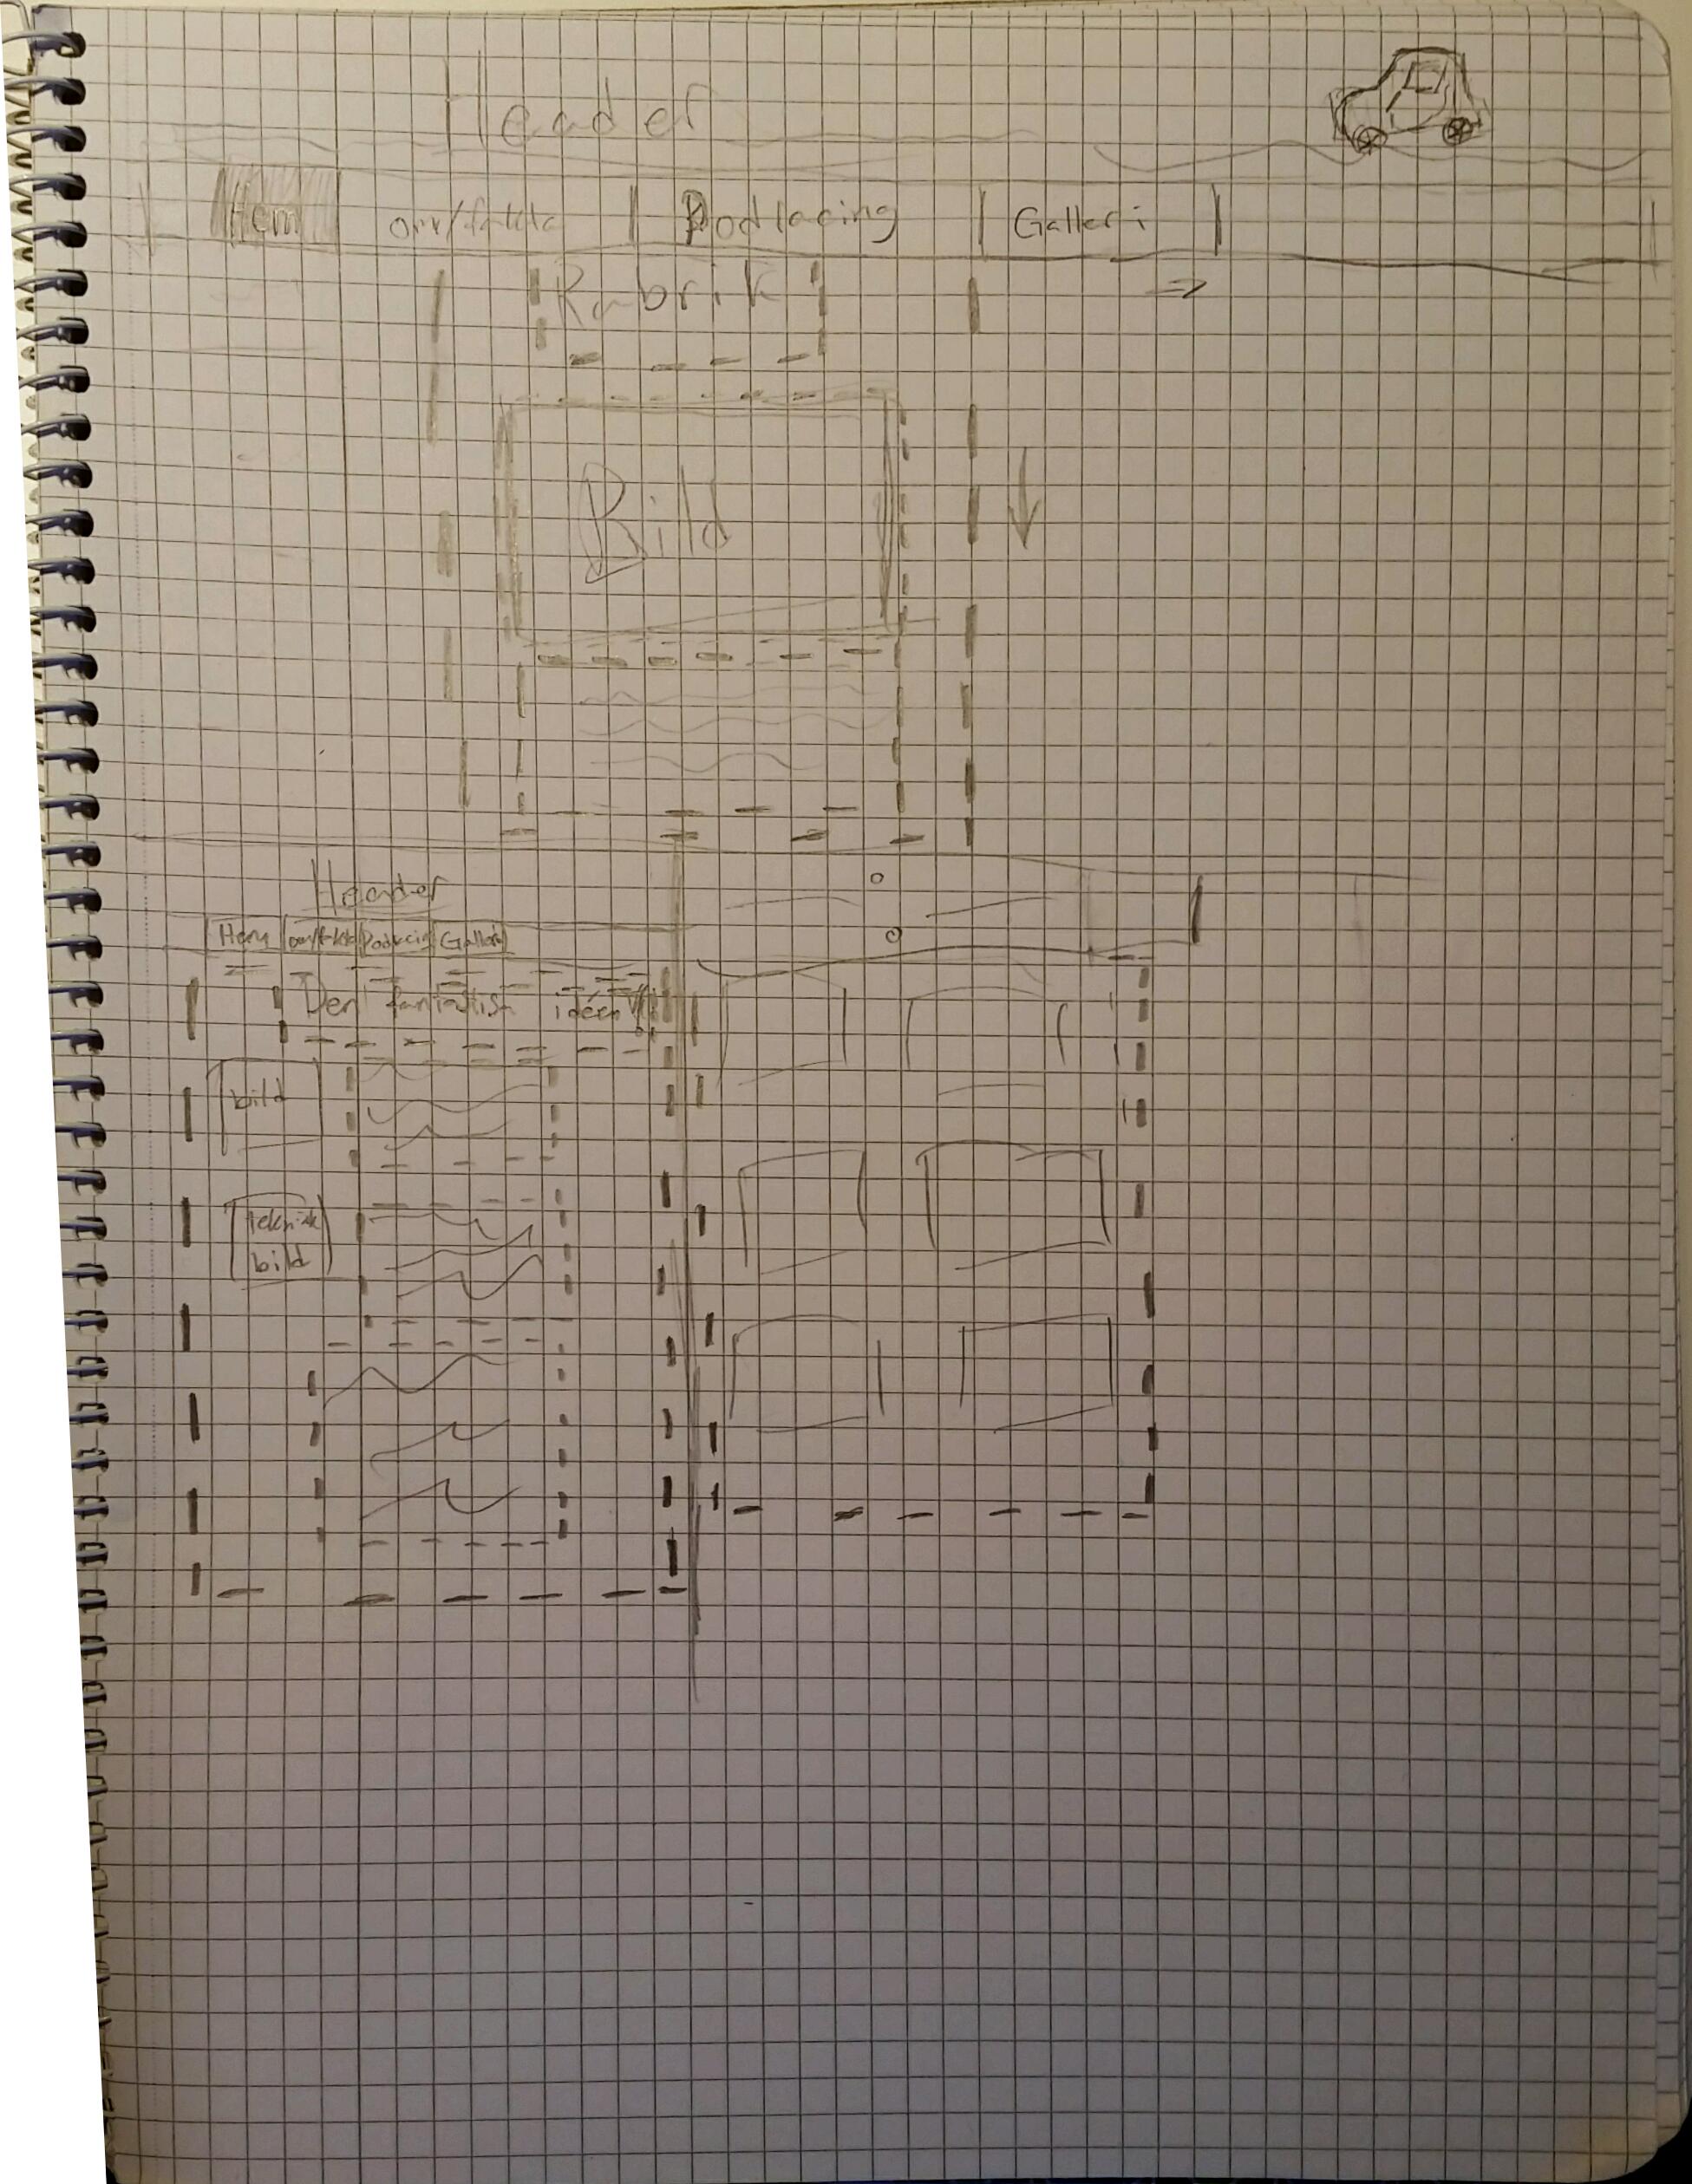 Header
Hem om/fakta Podlacing Galleri
Rubrik
Bild
Header
Hem om/fakta Galleri
Den fantastisk idéen
bild
teknisk
bild